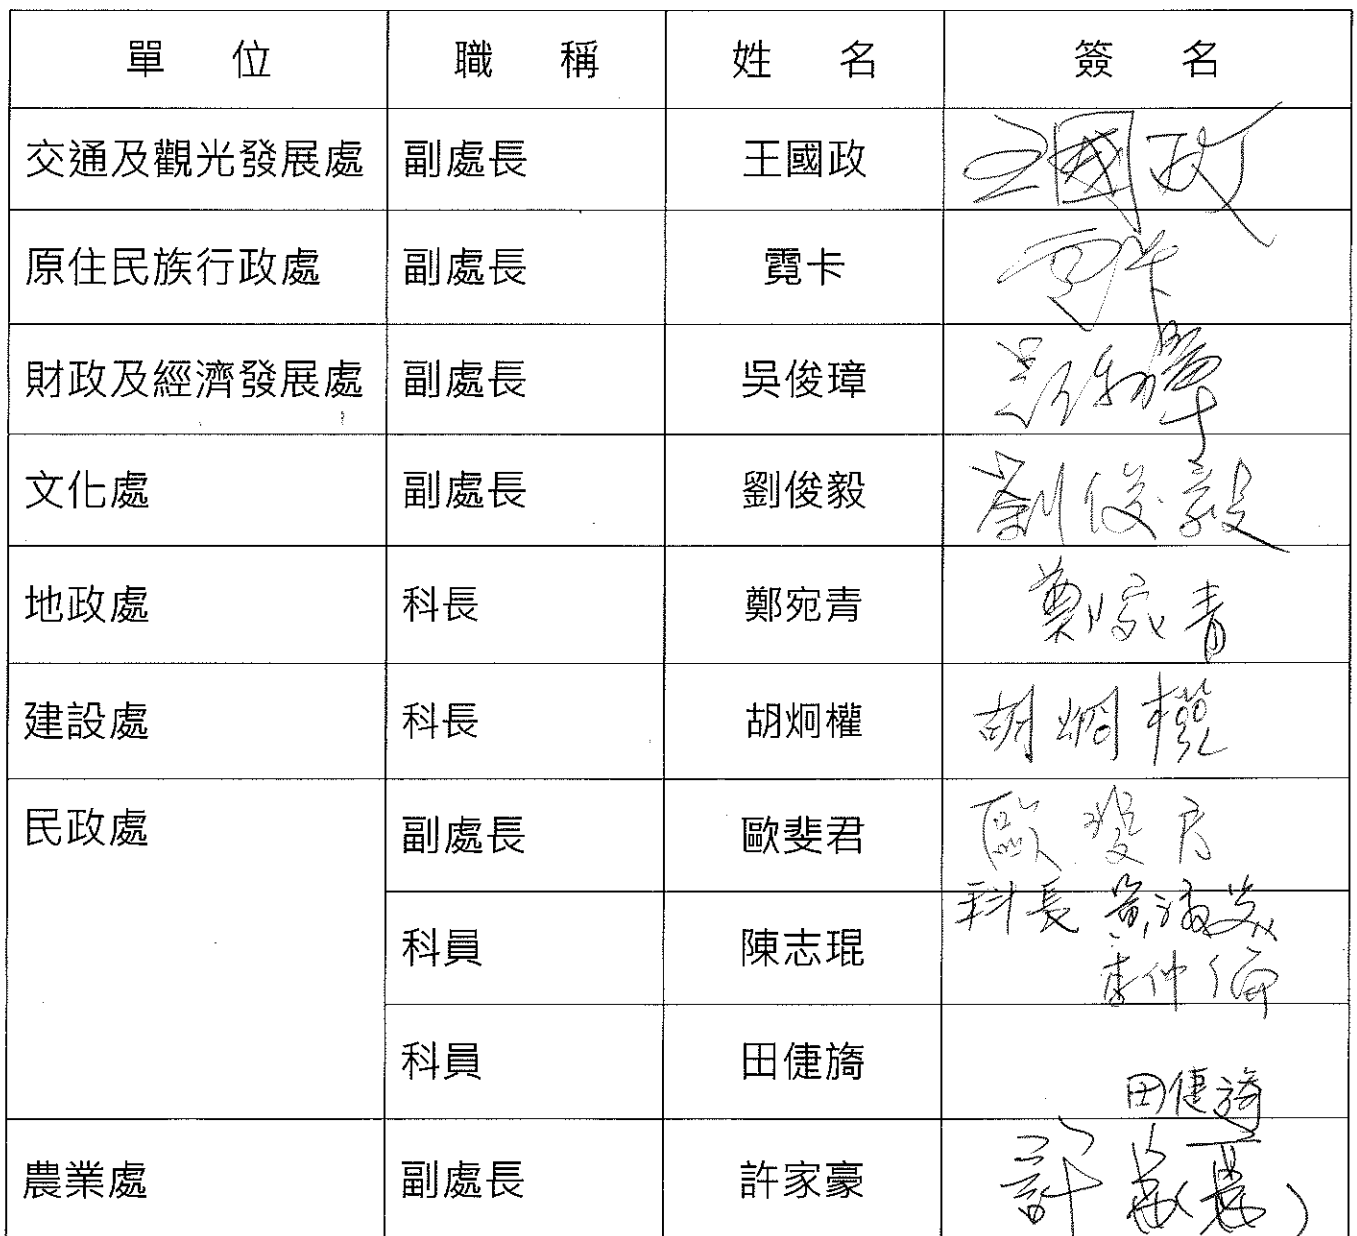 單位 職稱 姓名 簽名
交通及觀光發展處 副處長 王國政 王國政
原住民族行政處 副處長 霓卡 霓卡
財政及經濟發展處 副處長 吳俊璋 吳俊璋
文化處 副處長 劉俊毅 劉俊毅
地政處 科長 鄭宛青 鄭宛青
建設處 科長 胡炯權 胡炯權
民政處 副處長 歐斐君 歐斐君
科員 陳志琨 科長
李仲倫
科員 田倢旖 田倢旖
農業處 副處長 許家豪 許